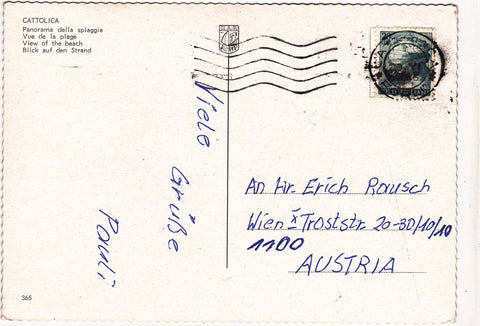 CATTOLICA
Panorama della spiaggia
Vue de la plage
View of the beach
Blick auf den Strand
Viele
Grüße
Pauli
An Hr. Erich Rausch
Wien X Troststr. 20-30/10/10
1100
AUSTRIA
365